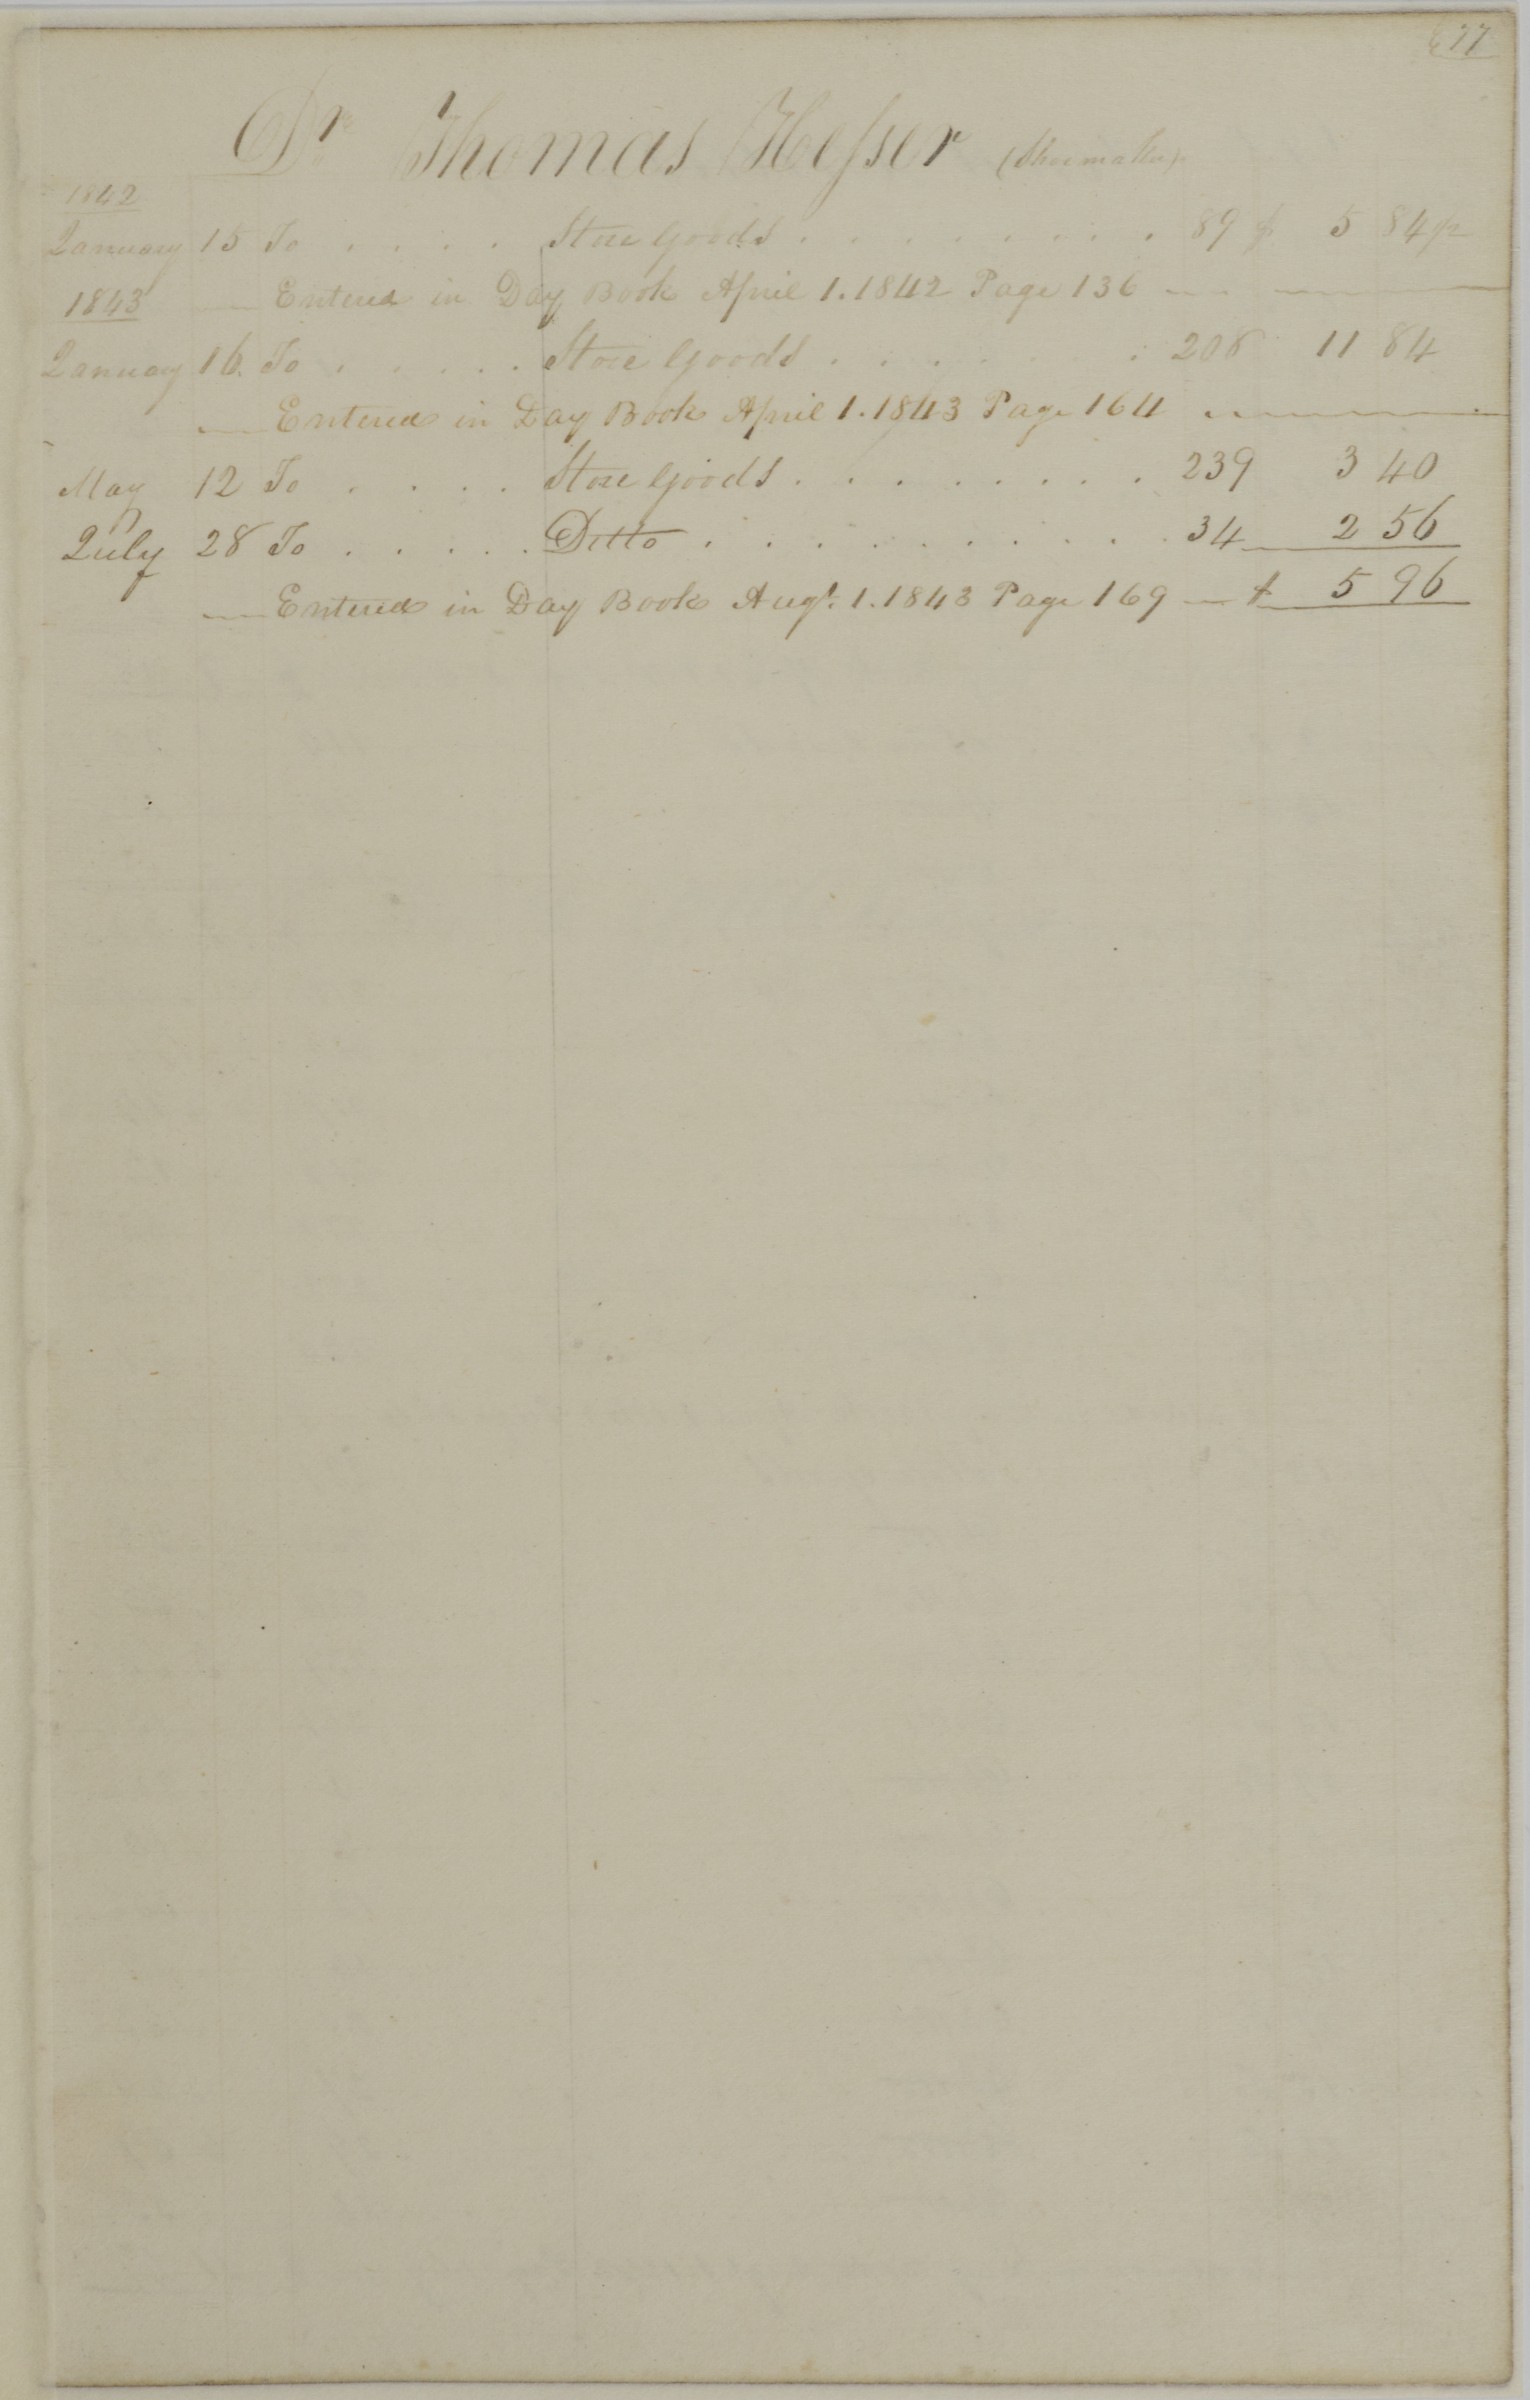 77
Dr Thomas Hesser (Shoemaker)
1842
January 15 To . . . . Store Goods . . . . . . . . 89 $ 5 84
1843 Entered in Day Book April 1. 1842 Page 136
January 16. To . . . . . Store Goods . . . . . . 208 11 84
Entered in Day Book April 1. 1843 Page 164
May 12 To . . . . Store Goods . . . . . . . . 239 3 40
July 28 To . . . . . Ditto . . . . . . . . . . 34 2 56
Entered in Day Book Augt. 1. 1843 Page 169 $ 5 96